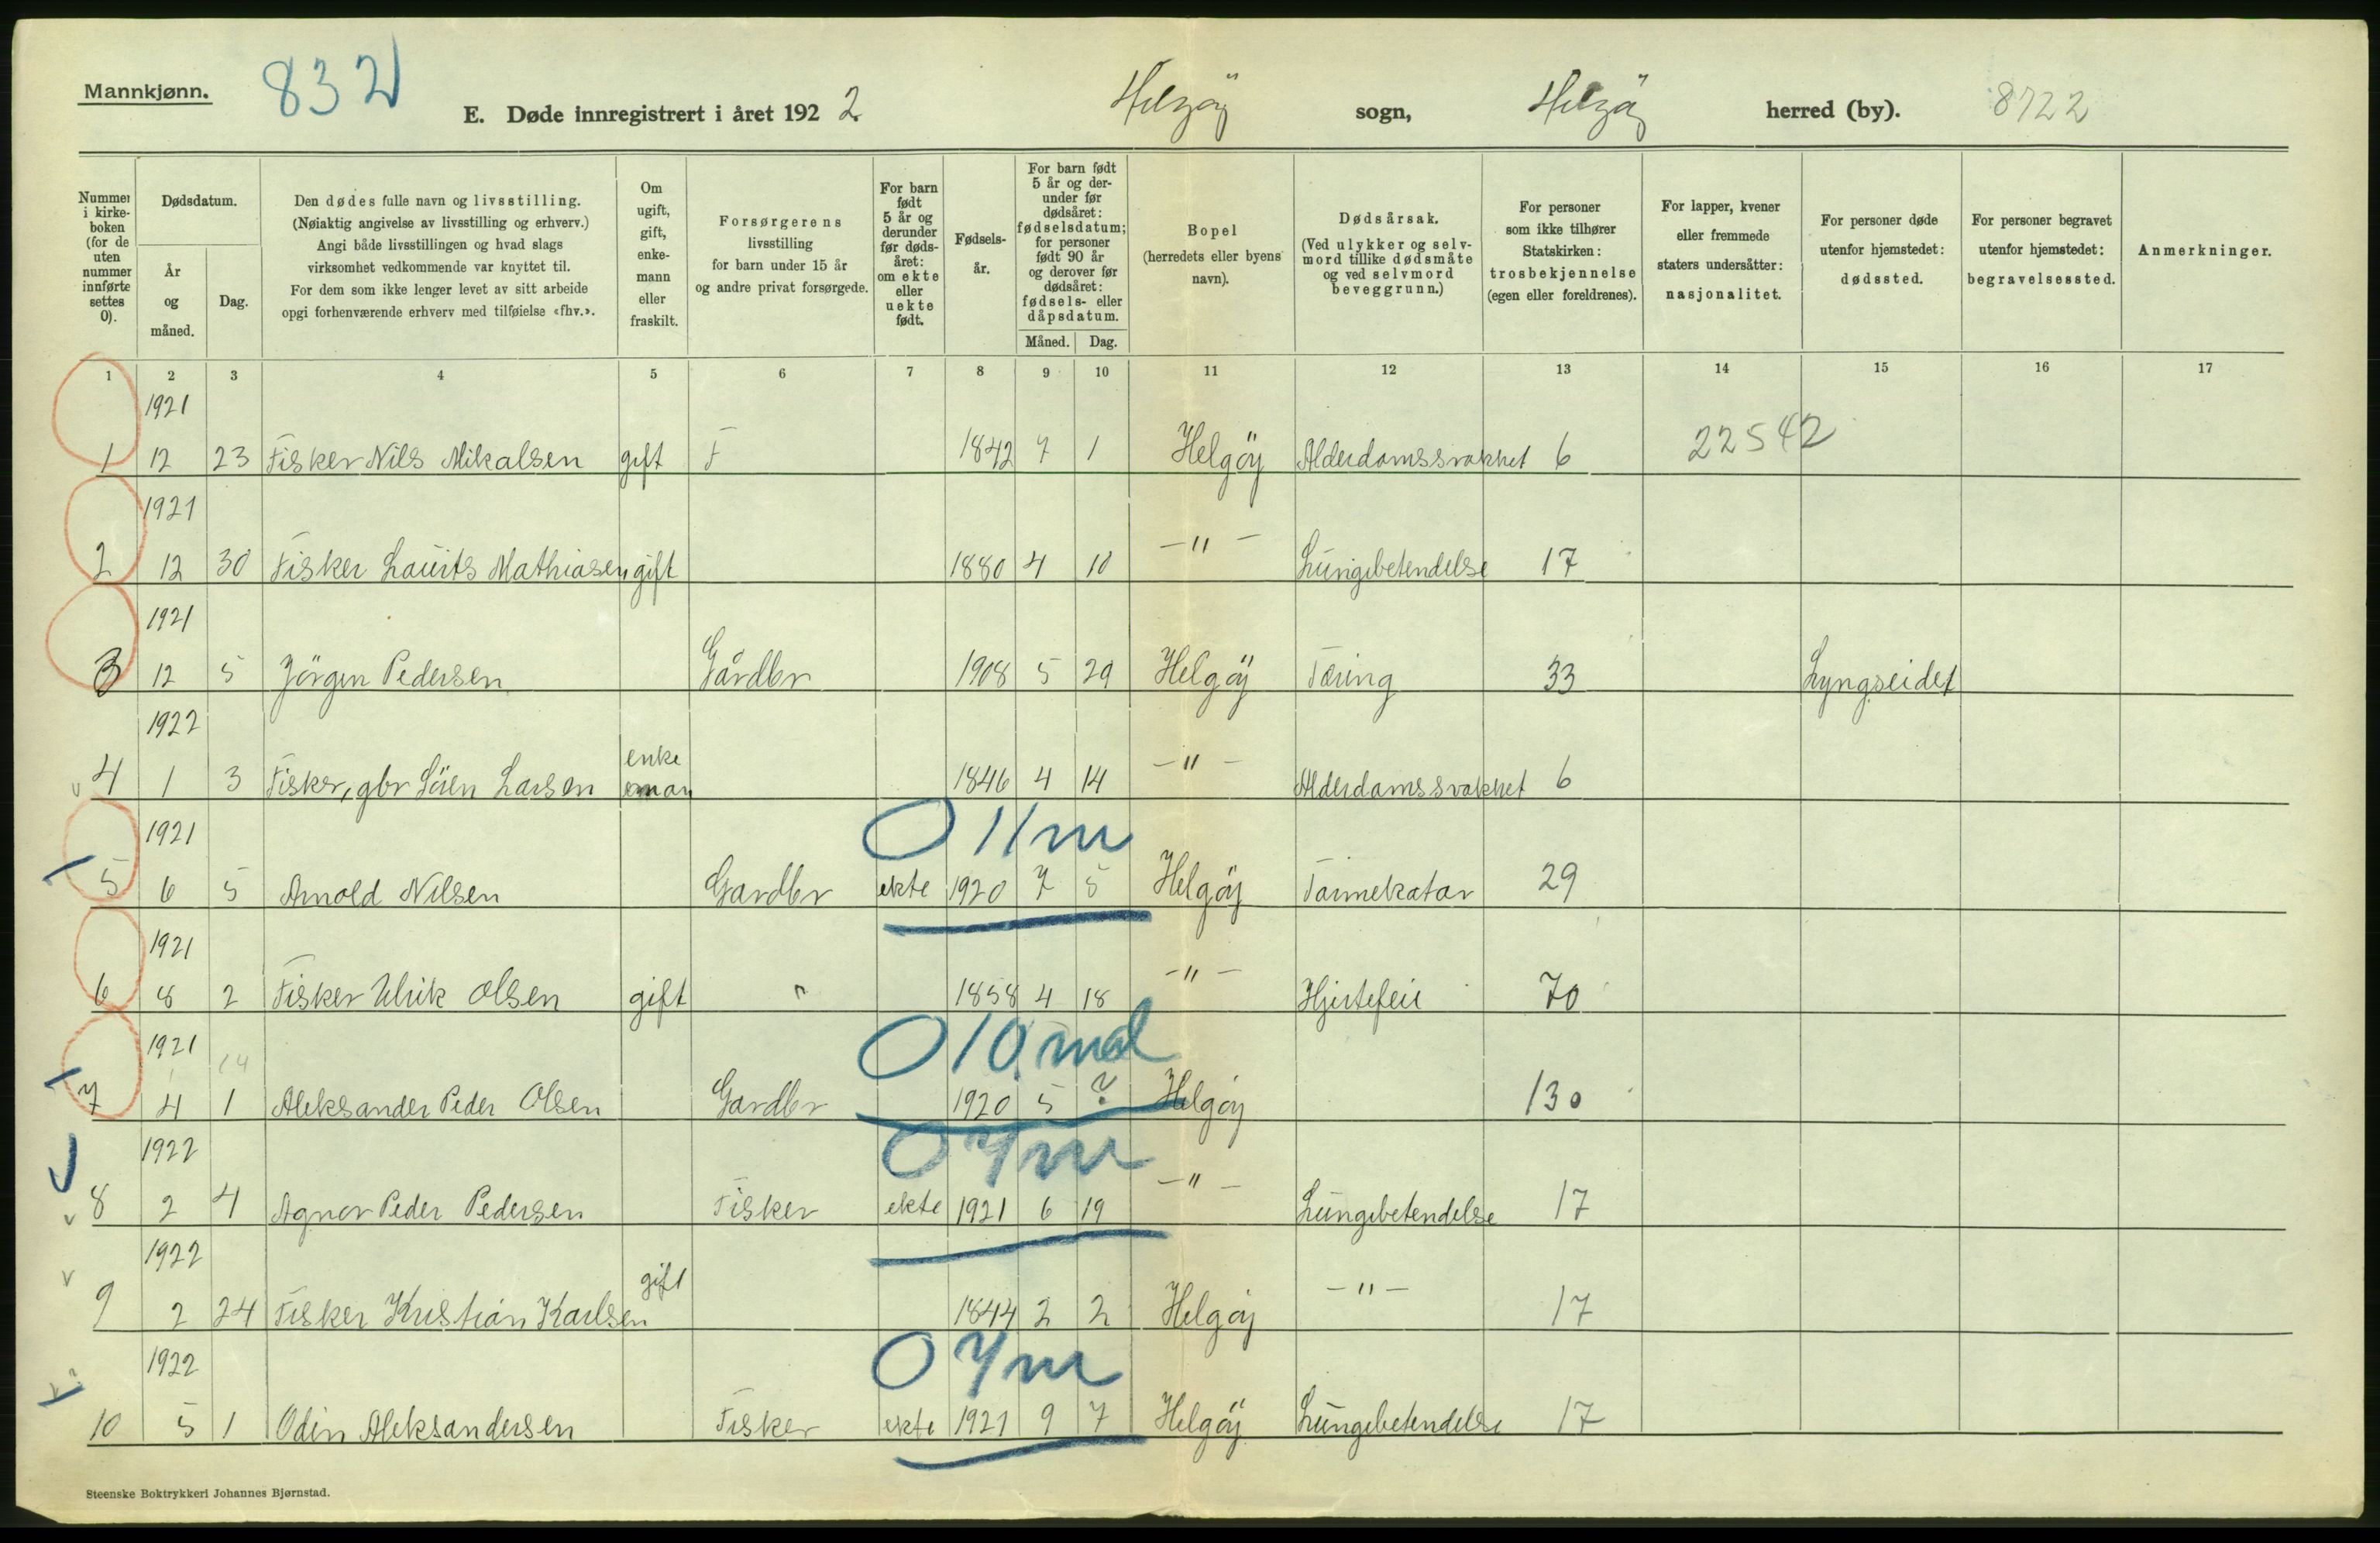 Mannkjønn. 832
E. Døde innregistrert i året 1922 Helgöy sogn, Helgöy herred (by). 8722
Nummer i kirke-boken (for de uten nummer innførte settes 0).
Dødsdatum.
År og måned.
Dag.
Den dødes fulle navn og livsstilling.
(Nøiaktig angivelse av livsstilling og erhverv.)
Angi både livsstillingen og hvad slags
virksomhet vedkommende var knyttet til.
For dem som ikke lenger levet av sitt arbeide
opgi forhenværende erhverv med tilføielse «fhv.».
Om ugift, gift, enke-mann eller fraskilt.
Forsørgerens
livsstilling
for barn under 15 år
og andre privat forsørgede.
For barn født 5 år og derunder før døds-året: om ekte eller uekte født.
Fødsels-år.
For barn født 5 år og der-under før dødsåret: fødselsdatum; for personer født 90 år og derover før dødsåret: fødsels- eller dåpsdatum.
Måned. Dag.
Bopel
(herredets eller byens navn).
Dødsårsak.
(Ved ulykker og selv-mord tillike dødsmåte og ved selvmord beveggrunn.)
For personer
som ikke tilhører
Statskirken:
trosbekjennelse
(egen eller foreldrenes).
For lapper, kvener
eller fremmede
staters undersåtter:
nasjonalitet.
For personer døde
utenfor hjemstedet:
dødssted.
For personer begravet
utenfor hjemstedet:
begravelsessted.
Anmerkninger.
1 2 3 4 5 6 7 8 9 10 11 12 13 14 15 16 17
1921
1 12 23 Fisker Nils Mikalsen gift F 1842 7 1 Helgöy Alderdomssvakhet 6 22542
1921
2 12 30 Fisker Laurits Mathiasen gift 1880 4 10 –"– Lungebetendelse 17
1921
3 12 5 Jörgen Pedersen Gårdbr 1908 5 29 Helgöy Tæring 33 Lyngseidet
1922
4 1 3 Fisker, gbr Sören Larsen enke man 1846 4 14 –"– Alderdomssvakhet 6
1921 0 11 m
5 6 5 Arnold Nilsen Gardbr ekte 1920 7 5 Helgöy Tarmekatar 29
1921
6 8 2 Fisker Ulrik Olsen gift " 1858 4 18 –"– Hjertefeil 70
1921 14 0 10 md
7 4 1 Aleksander Peder Olsen Gardbr 1920 5 ? Helgöy 130
1922 0 7 m
8 2 4 Agnar Peder Pedersen Fisker ekte 1921 6 19 –"– Lungebetendelse 17
1922
9 2 24 Fisker Kristian Karlsen gift 1844 2 2 Helgöy –"– 17
1922 0 7 m
10 5 1 Odin Aleksandersen Fisker ekte 1921 9 7 Helgöy Lungebetendelse 17
Steenske Boktrykkeri Johannes Bjørnstad.